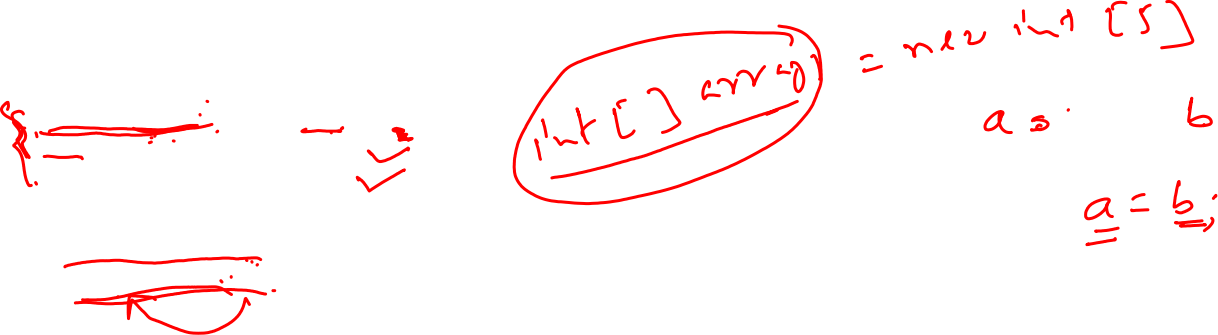 int[] array = new int [5]
a b
a = b;